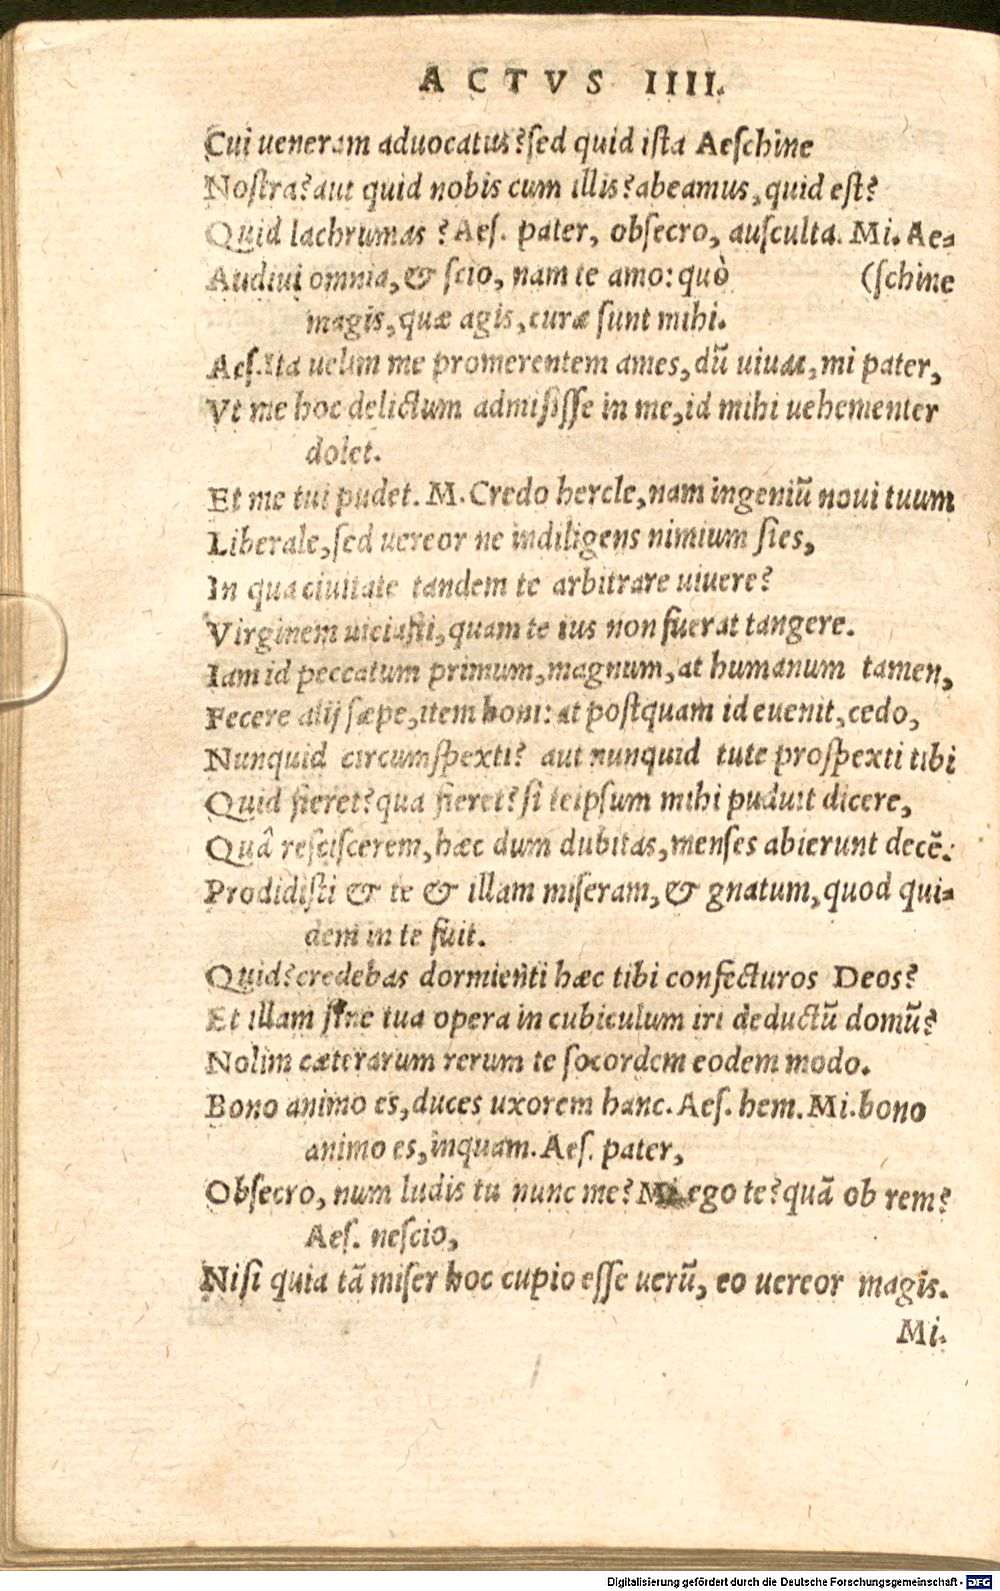 ACTVS IIII.
Cui ueneram aduocatus?sed quid ista Aeschine
Nostra?aut quid nobis cum illis?abeamus,quid est?
Quid lachrumas ?Aes. pater, obsecro, ausculta. Mi. Ae=
Audiui omnia,& scio, nam te amo:quò (schine
magis,quæ agis,curæ sunt mihi.
Aes.Ita uelim me promerentem ames,dū uiuas,mi pater,
Vt me hoc delictum admisisse in me,id mihi uehementer
dolet.
Et me tui pudet. M. Credo hercle,nam ingeniū noui tuum
Liberale,sed uereor ne indiligens nimium sies,
In qua ciuitate tandem te arbitrare uiuere?
Virginem uiciasti,quam te ius non fuerat tangere.
Iam id peccatum primum,magnum,at humanum tamen,
Fecere alij sæpe,item boni: at postquam id euenit,cedo,
Nunquid circumspexti? aut nunquid tute prospexti tibi
Quid fieret?qua fieret?si teipsum mihi puduit dicere,
Quâ rescíscerem,hæc dum dubitas,menses abierunt decē.
Prodidisti & te & illam miseram,& gnatum,quod qui=
dem in te fuit.
Quid?credebas dormienti hæc tibi confecturos Deos?
Et illam sine tua opera in cubiculum iri deductū domū?
Nolim cæterarum rerum te socordem eodem modo.
Bono animo es,duces uxorem hanc. Aes. hem. Mi.bono
animo es,inquam. Aes. pater,
Obsecro, num ludis tu nunc me? Mi.ego te?quā ob rem?
Aes. nescio,
Nisi quia tā miser hoc cupio esse uerū, eo uereor magis.
Mi.
Digitalisierung gefördert durch die Deutsche Forschungsgemeinschaft - DFG